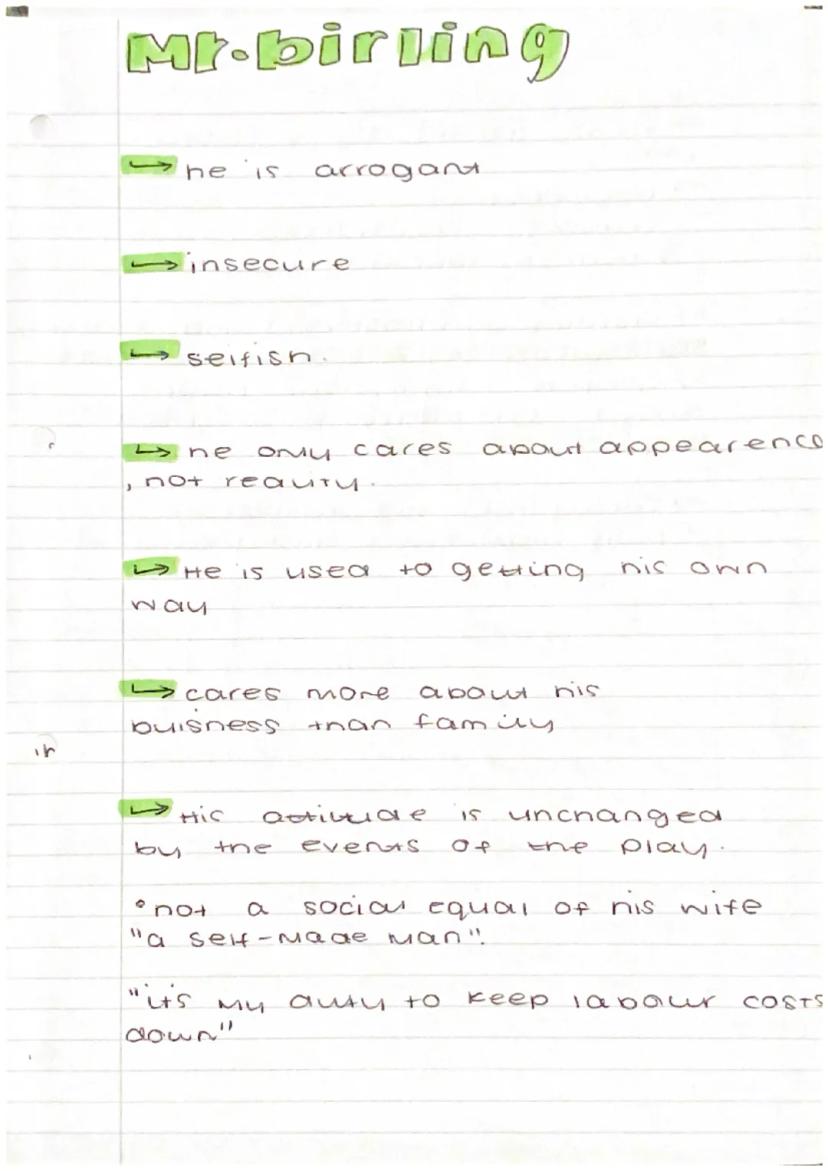 Mr. birling
↳ he is arrogant
↳ insecure
↳ selfish.
↳ he only cares about appearence
, not reality.
↳ He is used to getting his own
way
↳ cares more about his
buisness than family
↳ His attitude is unchanged
by the events of the play.
• not a social equal of his wife
"a self-made man".
"it's my duty to keep labour costs
down"